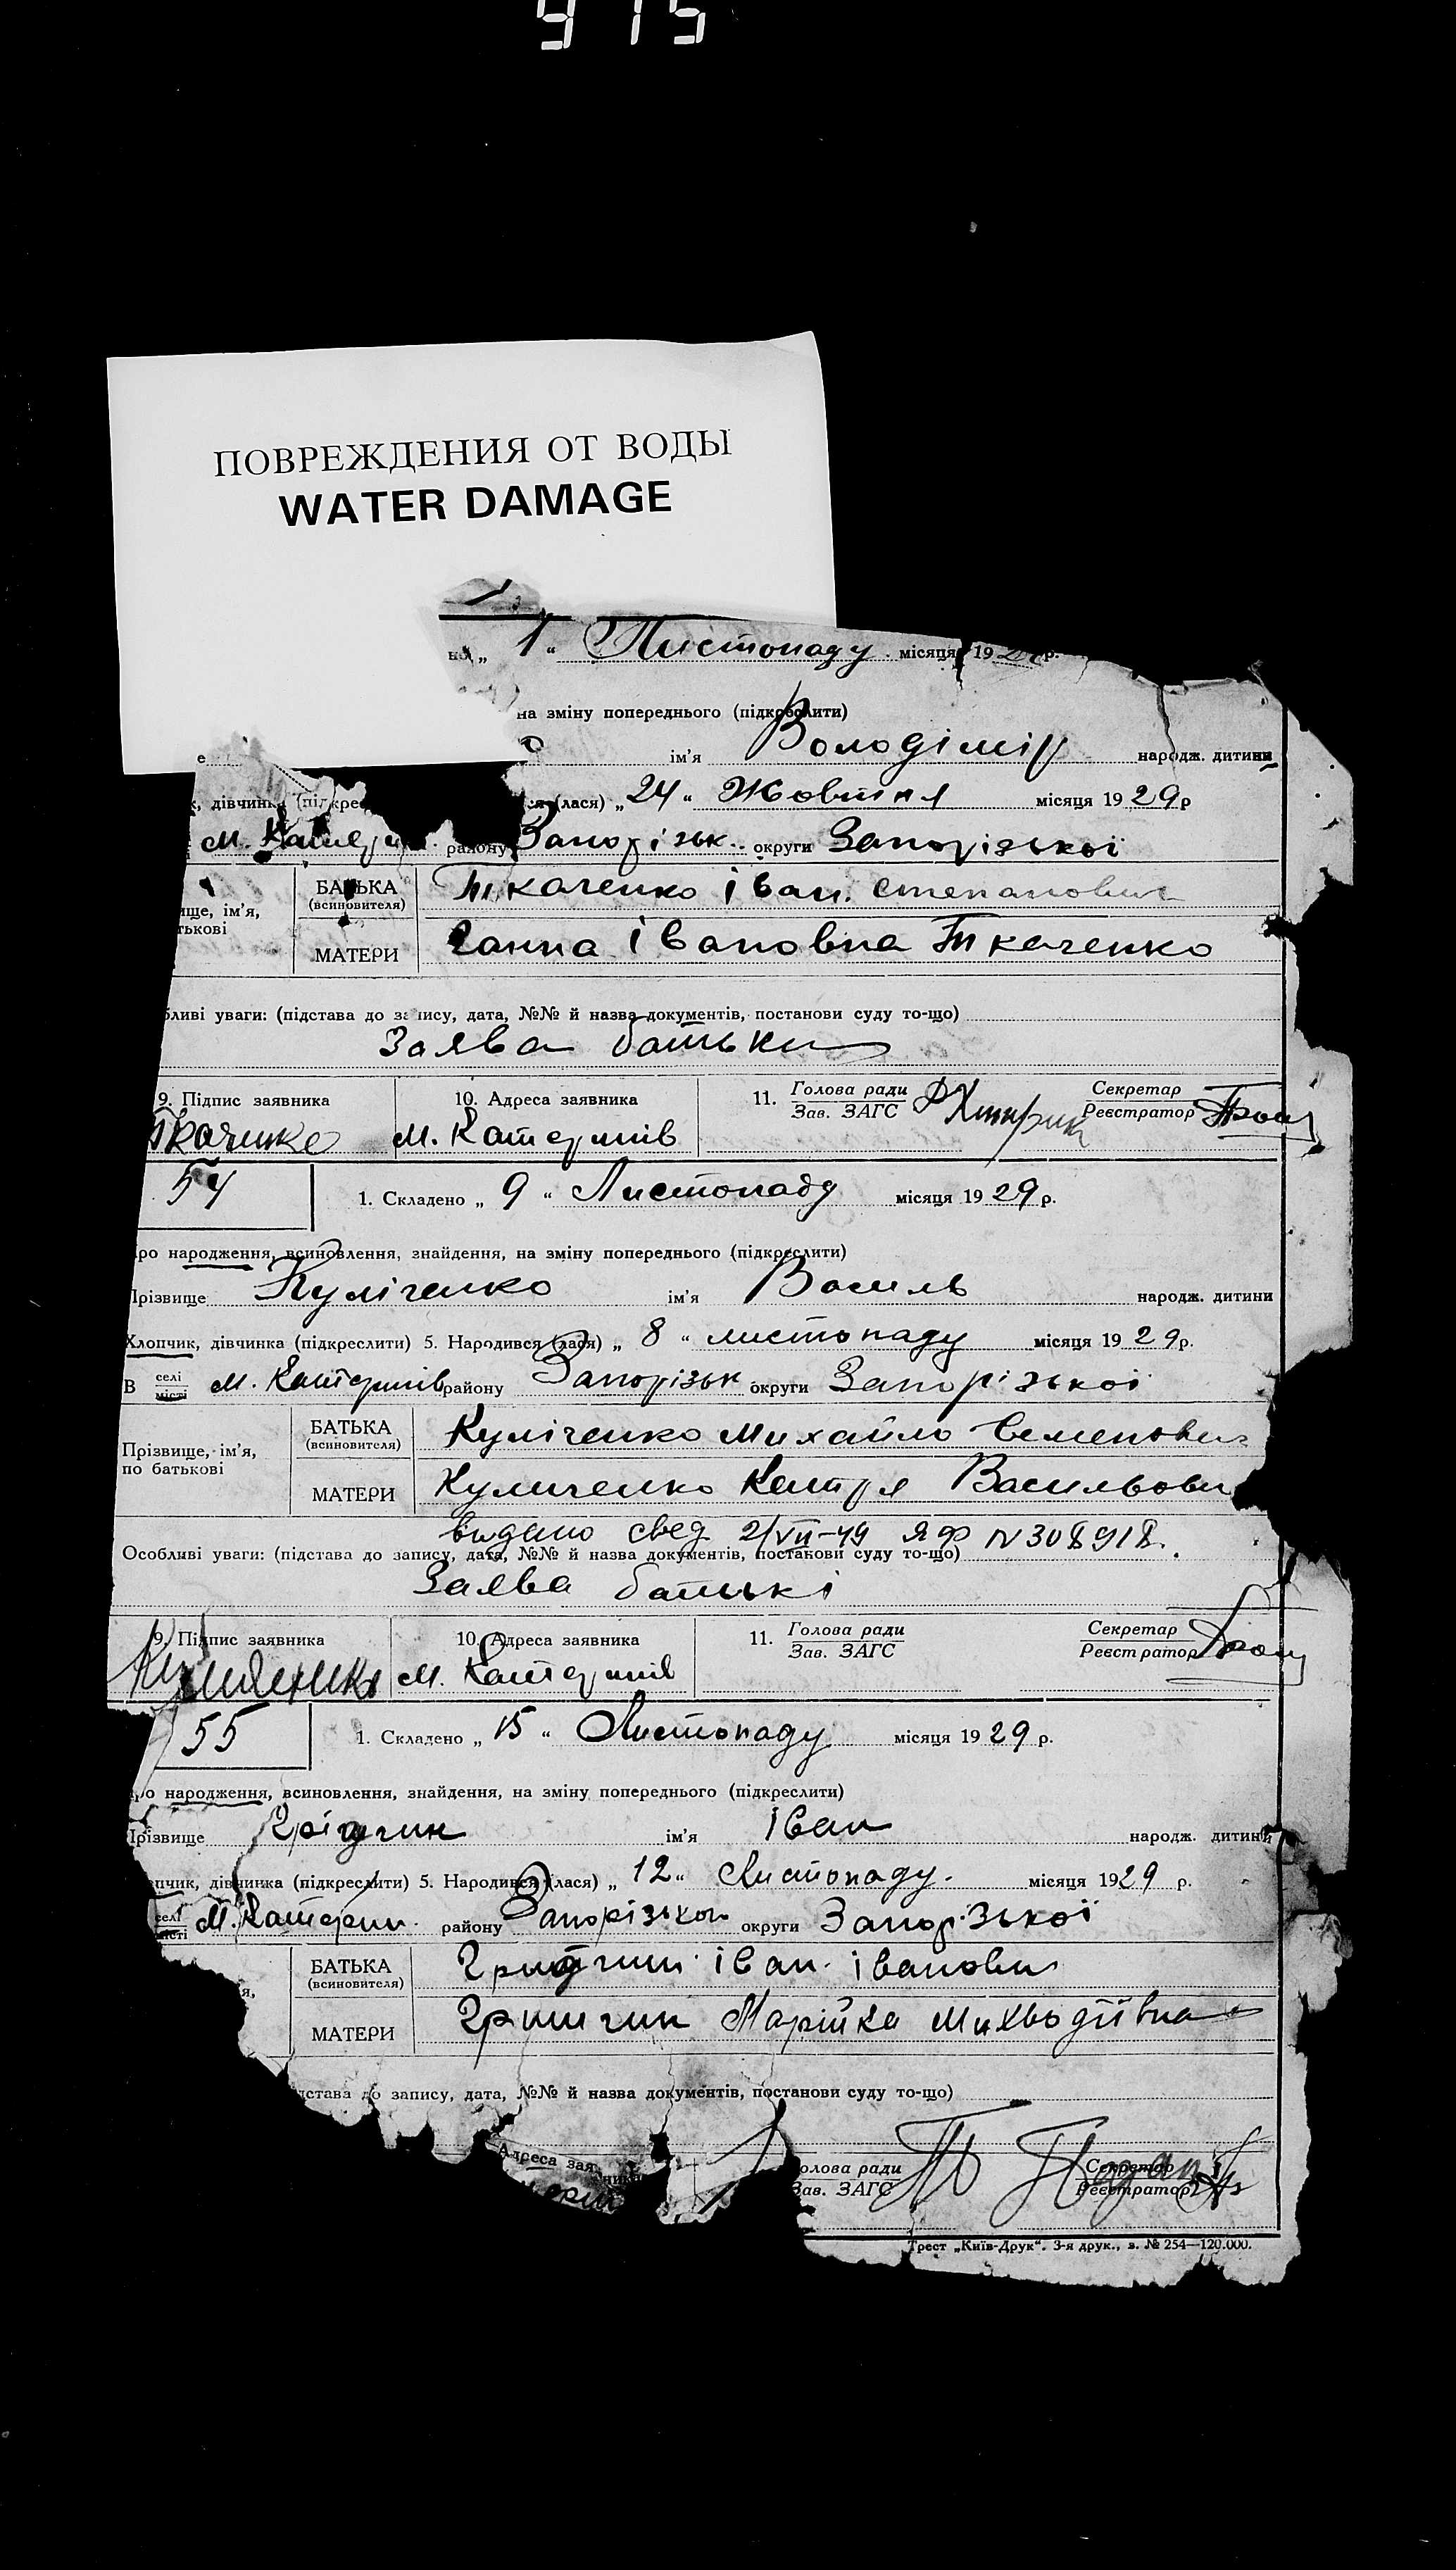 975
ПОВРЕЖДЕНИЯ ОТ ВОДЫ
WATER DAMAGE
но „ 1 “ Листопаду місяця 19 р.
на зміну попереднього (підкреслити)
ім’я Володімір народж. дитини
дівчинка (підкрес ся (лася) „ 24 “ Жовтня місяця 19 29 р
м. району Запорізьк. округи Запорізької
ище, ім’я,
тькові
БАТЬКА
(всиновителя)
Ткаченко Іван. Степанович
МАТЕРИ Ганна Івановна Ткаченко
бливі уваги: (підстава до запису, дата, №№ й назва документів, постанови суду то-що)
Заява батьки
9. Підпис заявника 10. Адреса заявника 11. Голова ради Секретар
Зав. ЗАГС Реєстратор
Ткаченко м. Катеринів
54 1. Складено „ 9 “ Листопаду місяця 19 29 р.
ро народження, всиновлення, знайдення, на зміну попереднього (підкреслити)
Прізвище Куліченко ім’я Василь народж. дитини
Хлопчик, дівчинка (підкреслити) 5. Народився (лася) „ 8 “ листопаду місяця 19 29 р.
В селі
місті
м. Катеринів району Запорізьк округи Запорізькоі
Прізвище, ім’я,
по батькові
БАТЬКА
(всиновителя)
Куліченко Михайло Семенович
МАТЕРИ Куличенко Катря Васильови
видано свед 2/VII-49 ЯФ N 308918.
Особливі уваги: (підстава до запису, дата, №№ й назва документів, постанови суду то-що)
Заява батькі
9. Підпис заявника 10. Адреса заявника 11. Голова ради Секретар
Зав. ЗАГС Реєстратор
м. Катеринів
55 1. Складено „ 15 “ Листопаду місяця 19 29 р.
ро народження, всиновлення, знайдення, на зміну попереднього (підкреслити)
Прізвище ім’я Іван народж. дитини
пчик, дівчинка (підкреслити) 5. Народився (лася) „ 12 “ Листопаду. місяця 19 29 р.
селі
місті
м. Катерин. району Запорізьког округи Запорізької
БАТЬКА
(всиновителя)
іван. іванови
МАТЕРИ Гришчин Марійка
ідстава до запису, дата, №№ й назва документів, постанови суду то-що)
Адреса заявника
олова ради Секретар
Зав. ЗАГС Реєстратор
Трест „Київ-Друк“. 3-я друк., з. № 254—120.000.